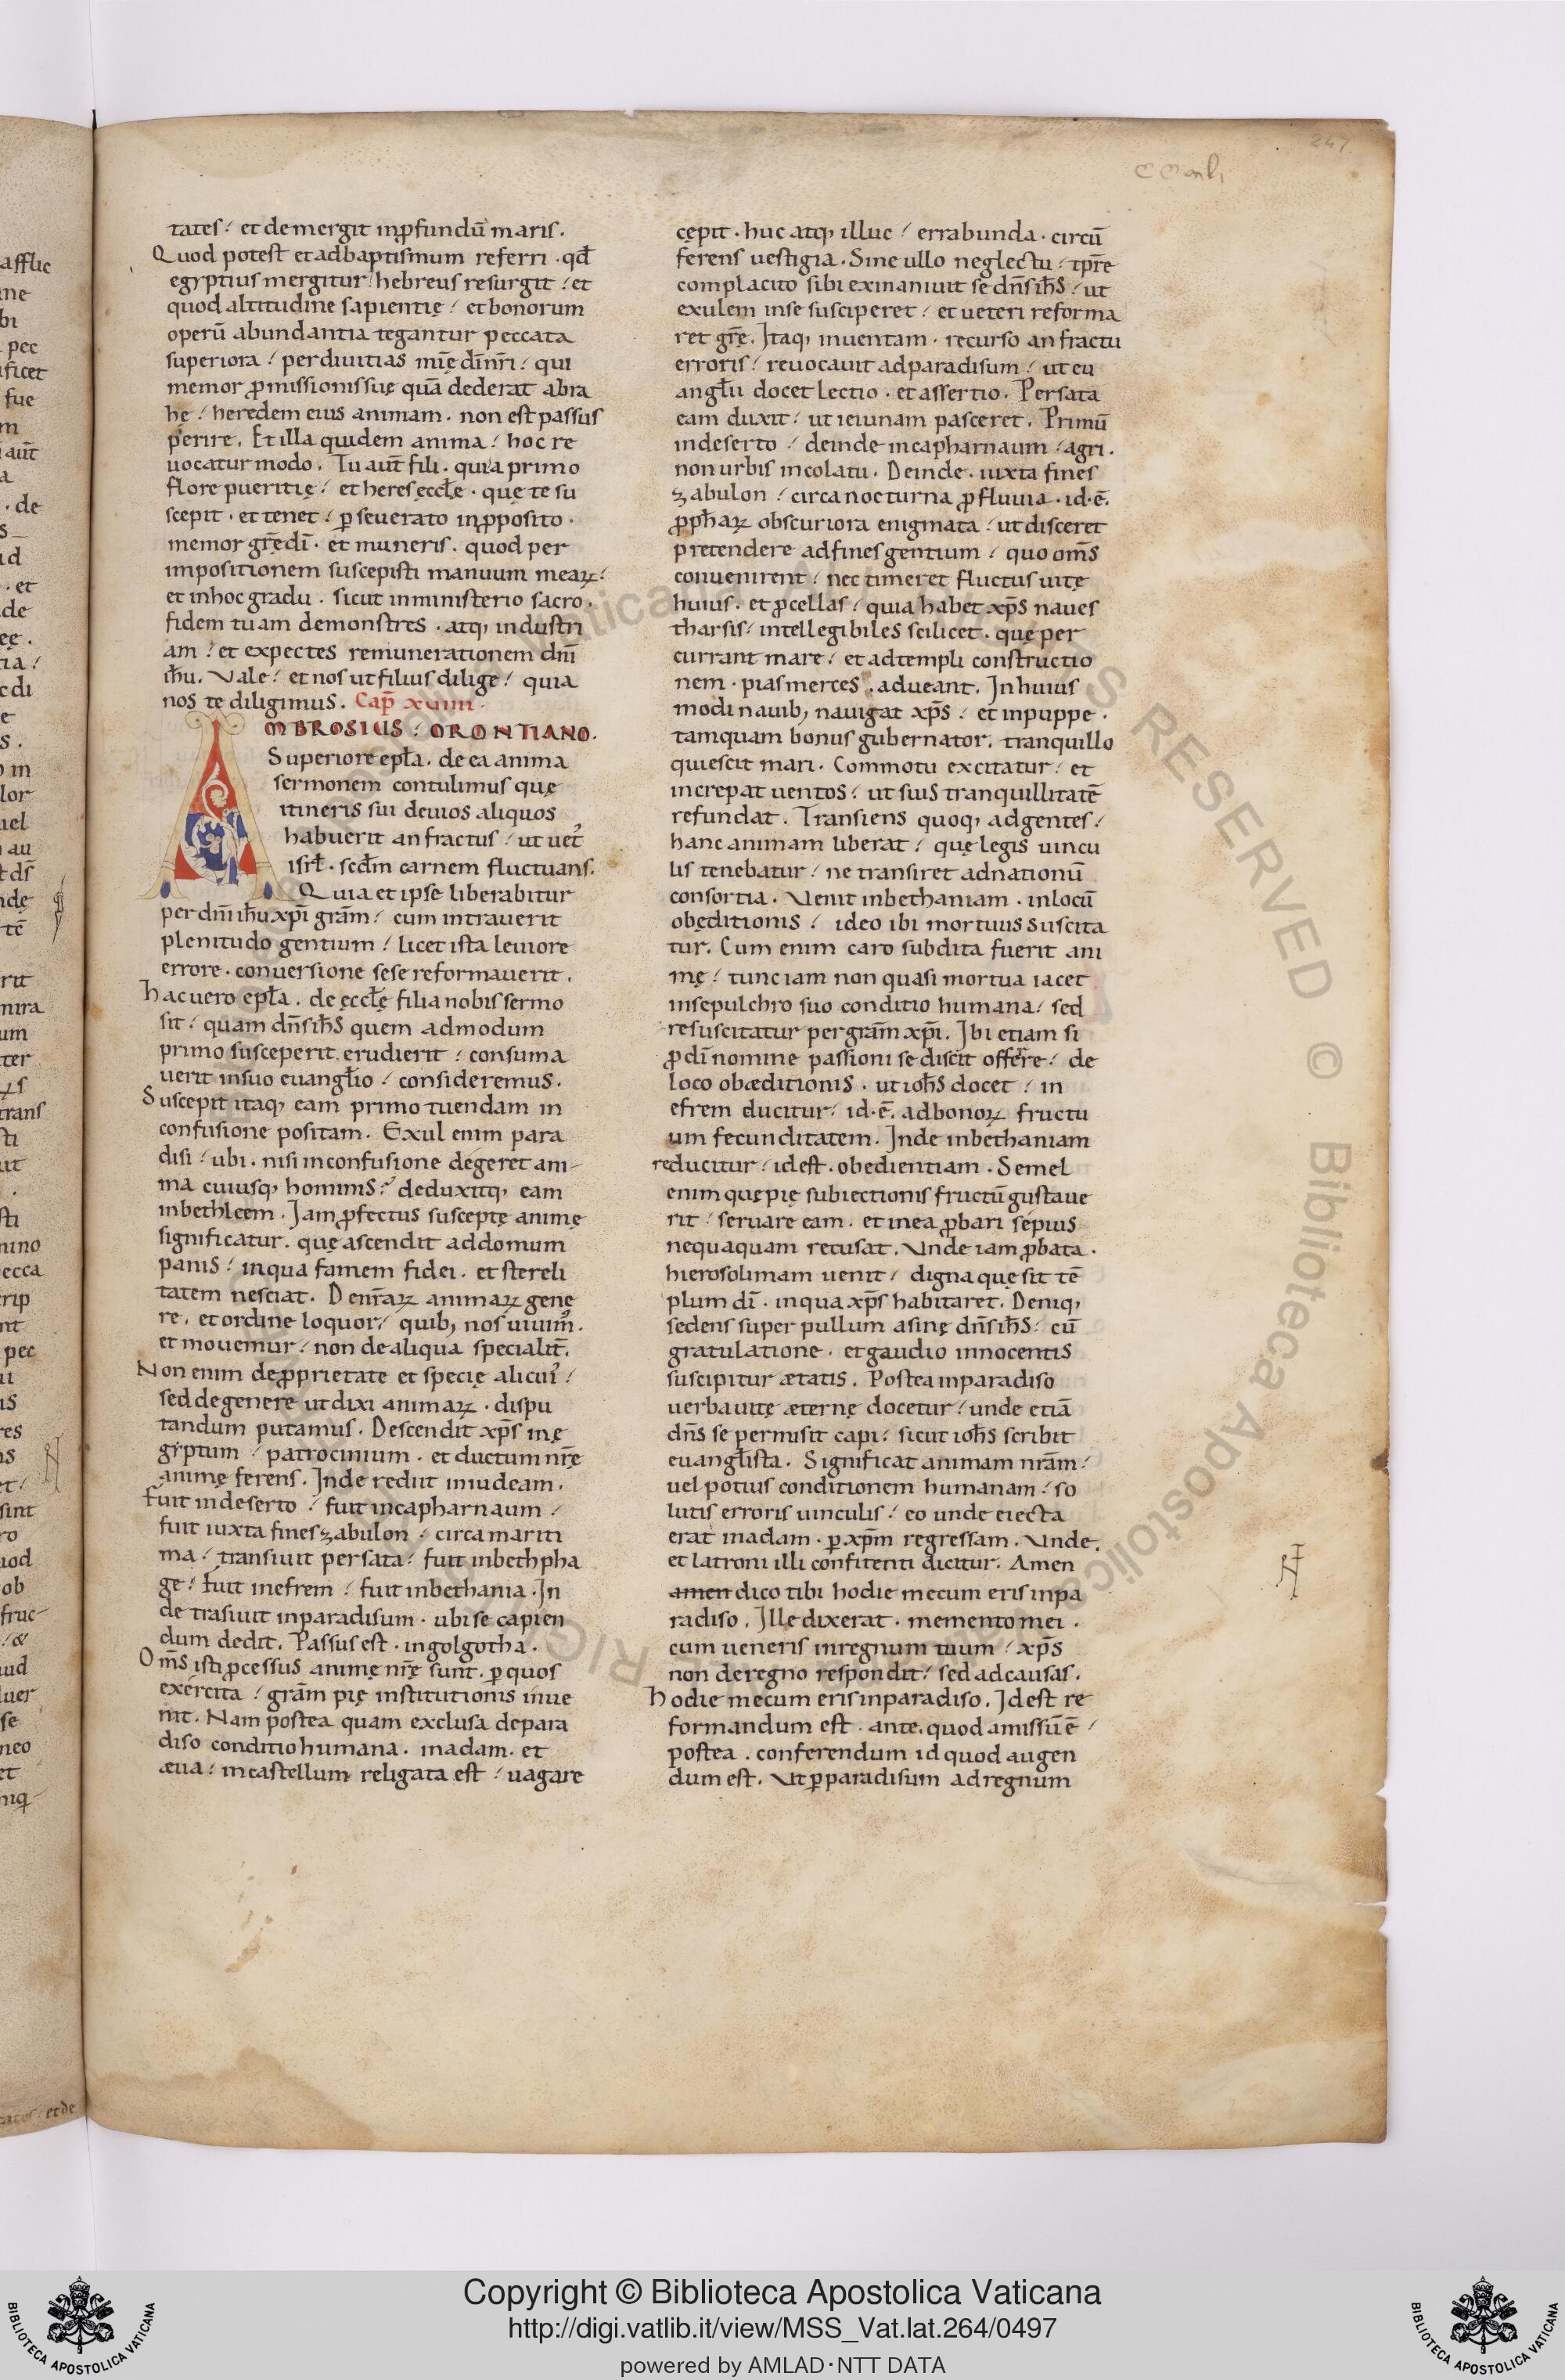 247.
tates / et demergit inp̄fundū maris.
Quod potest et ad baptismum referri . qđ
egyptius mergitur / hebreus resurgit / et
quod altitudine sapientię / et bonorum
operū abundantia tegantur peccata
superiora / per diuitias mīę dī nrī / qui
memor promissionis suę quā dederat abra
hę / heredem eius animam . non est passus
perire. Et illa quidem anima / hoc re
uocatur modo. Tu aūt fili . quia primo
flore pueritię / et heres ęcclę . quę te su
scepit . et tenet / p̱seuerato inp̄posito .
memor gr̄ę dī . et muneris . quod per
impositionem suscepisti manuum meaꝝ /
et in hoc gradu . sicut in ministerio sacro .
fidem tuam demonstres . atq; industri
am / et expectes remunerationem dnī
ih̄u. Vale / et nos ut filius dilige / quia
nos te diligimus. Cap̄ xuiiii.
AMBROSIUS : ORONTIANO.
Superiore epl̄a . de ea anima
sermonem contulimus quę
itineris sui deuios aliquos
habuerit anfractus / ut uet᷒
isrł . scđm carnem fluctuans.
Quia et ipse liberabitur
per dnm̄ ih̄u xp̄i grām / cum intrauerit
plenitudo gentium / licet ista leuiore
errore . conuersione sese reformauerit .
hac uero epl̄a . de ęcclę filia nobis sermo
sit / quam dn̄s ih̄s quem admodum
primo susceperit . erudierit / consuma
uerit in suo euangl̄io / consideremus.
Suscepit itaq; eam primo tuendam in
confusione positam. Exul enim para
disi / ubi . nisi in confusione degeret ani-
ma cuiusq; hominis? deduxitq; eam
in bethleem. Iam p̄fectus susceptę animę
significatur . quę ascendit ad domum
panis / in qua famem fidei . et stereli
tatem nesciat. De nr̄aꝝ animaꝝ gene
re . et ordine loquor / quib; nos uiuim᷒ .
et mouemur / non de aliqua specialit̄.
Non enim de p̄prietate et specię alicui᷒ /
sed de genere ut dixi animaꝝ . dispu
tandum putamus. Descendit xp̄s in ę
gyptum / patrocinium . et ductum nr̄ę
animę ferens. Inde rediit in iudeam.
fuit in deserto / fuit in capharnaum /
fuit iuxta fines zabulon / circa mariti
ma / transiuit per sata / fuit in bethpha
ge / fuit in efrem / fuit in bethania . In
de trasiuit in paradisum . ubi se capien
dum dedit. Passus est . in golgotha .
Om̄s isti p̄cessus animę nr̄ę sunt . p̱ quos
exercita / grām pię institutionis inue
nit. Nam postea quam exclusa de para
diso conditio humana . in adam . et
æua / in castellum religata est / uagare
cępit . huc atq; illuc / errabunda . circū
ferens uestigia. Sine ullo neglectu / tp̄re
complacito sibi exinaniuit se dn̄s ih̄s / ut
exulem in se susciperet / et ueteri reforma
ret gr̄ę. Itaq; inuentam . recurso anfractu
erroris / reuocauit ad paradisum / ut eu
angl̄ii docet lectio . et assertio. Per sata
eam duxit / ut ieiunam pasceret. Primū
in deserto / deinde in capharnaum / agri .
non urbis incolatu. Deinde . iuxta fines
zabulon / circa nocturna p̄fluuia . id . ē .
p̄ph̄aꝝ obscuriora enigmata / ut disceret
pretendere ad fines gentium / quo om̄s
conuenirent / nec timeret fluctus uitę
huius . et p̄cellas / quia habet xp̄s naues
tharsis / intellegibiles scilicet . quę per
currant mare / et ad templi constructio
nem . pias merces . adueant. In huius
modi nauib; nauigat xp̄s / et in puppe .
tamquam bonus gubernator . tranquillo
quiescit mari. Commotu excitatur / et
increpat uentos / ut suis tranquillitatē
refundat. Transiens quoq; ad gentes /
hanc animam liberat / quę legis uincu
lis tenebatur / ne transiret ad nationū
consortia. Venit in bethaniam . in locū
obęditionis / ideo ibi mortuus suscita
tur. Cum enim caro subdita fuerit ani
mę / tunc iam non quasi mortua iacet
in sepulchro suo conditio humana / sed
resuscitatur per grām xp̄i. Ibi etiam si
p̄ dī nomine passioni se discit offerre / de
loco obæditionis . ut ioh̄s docet / in
efrem ducitur / id . ē . ad bonoꝝ fructu
um fecunditatem. Inde in bethaniam
reducitur / id est . obedientiam. Semel
enim quę pię subiectionis fructū gustaue
rit / seruare eam . et in ea p̄bari sepius
nequaquam recusat. Vnde iam p̄bata .
hierosolimam uenit / digna quę sit tē
plum dī . in qua xp̄s habitaret. Deniq;
sedens super pullum asinę dn̄s ih̄s / cū
gratulatione . et gaudio innocentis
suscipitur ætatis. Postea in paradiso
uerba uitę æternę docetur / unde etiā
dn̄s se permisit capi / sicut ioh̄s scribit
euangl̄ista. Significat animam nrām /
uel potius conditionem humanam / so
lutis erroris uinculis / eo unde eiecta
erat in adam . p̱ xp̄m regressam. Vnde .
et latroni illi confitenti dicitur. Amen
amen dico tibi hodie mecum eris in pa
radiso. Ille dixerat . memento mei .
cum ueneris in regnum tuum / xp̄s
non de regno respondit / sed ad causas.
hodie mecum eris in paradiso. Id est re
formandum est . ante . quod amissū ē /
postea . conferendum id quod augen
dum est. Vt p̱ paradisum ad regnum
Copyright © Biblioteca Apostolica Vaticana
http://digi.vatlib.it/view/MSS_Vat.lat.264/0497
powered by AMLAD·NTT DATA
BIBLIOTECA APOSTOLICA VATICANA
BIBLIOTECA APOSTOLICA VATICANA